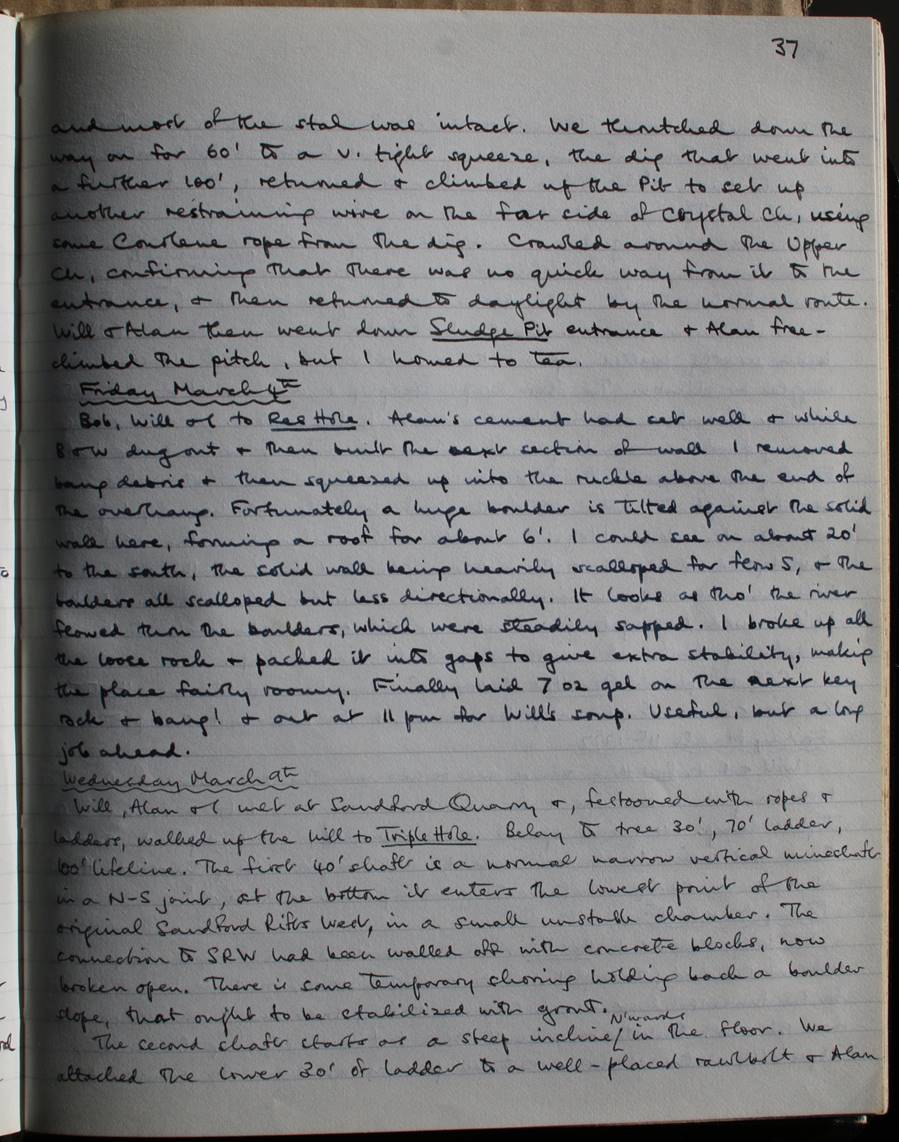 37
and most of the stal was intact. We thrutched down the
way on for 60' to a v. tight squeeze, the dig that went into
a further 100', returned & climbed up the Pit to set up
another restraining wire on the far side of Crystal Ch, using
some Courlene rope from the dig. Crawled around the Upper
Ch, confirming that there was no quick way from it to the
entrance, & then returned to daylight by the normal route.
Will & Alan then went down Sludge Pit entrance & Alan free-
climbed the pitch, but I homed to tea.
Friday March 4th
Bob, Will & I to Rees Hole. Alan's cement had set well & while
B & W dug out & then built the next section of wall I removed
bang debris & then squeezed up into the ruckle above the end of
the overhang. Fortunately a huge boulder is tilted against the solid
wall here, forming a roof for about 6'. I could see on about 20'
to the south, the solid wall being heavily scalloped for flow S, & the
boulders all scalloped but less directionally. It looks as tho' the river
flowed thru the boulders, which were steadily sapped. I broke up all
the loose rock & packed it into gaps to give extra stability, making
the place fairly roomy. Finally laid 7 oz gel on the next key
rock & bang! & out at 11 pm for Will's soup. Useful, but a long
job ahead.
Wednesday March 9th
Will, Alan & I met at Sandford Quarry &, festooned with ropes &
ladders, walked up the hill to Triple Hole. Belay to tree 30', 70' ladder,
100' lifeline. The first 40' shaft is a normal narrow vertical mineshaft
in a N-S joint, at the bottom it enters the lowest point of the
original Sandford Rifts West, in a small unstable chamber. The
connection to SRW had been walled off with concrete blocks, now
broken open. There is some temporary shoring holding back a boulder
slope, that ought to be stabilized with grout.
The second shaft starts as a steep incline N'wards in the floor. We
attached the lower 30' of ladder to a well-placed rawlbolt & Alan